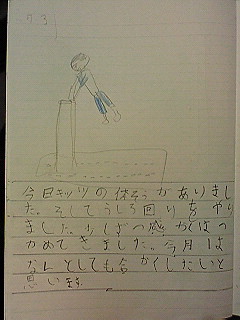 7.3
今日キッツの体そうがありまし
た。そしてうしろ回りをやり
ました。少しずつ感かくはつ
かめてきました。今月は
なんとしても合かくしたいと
思います。